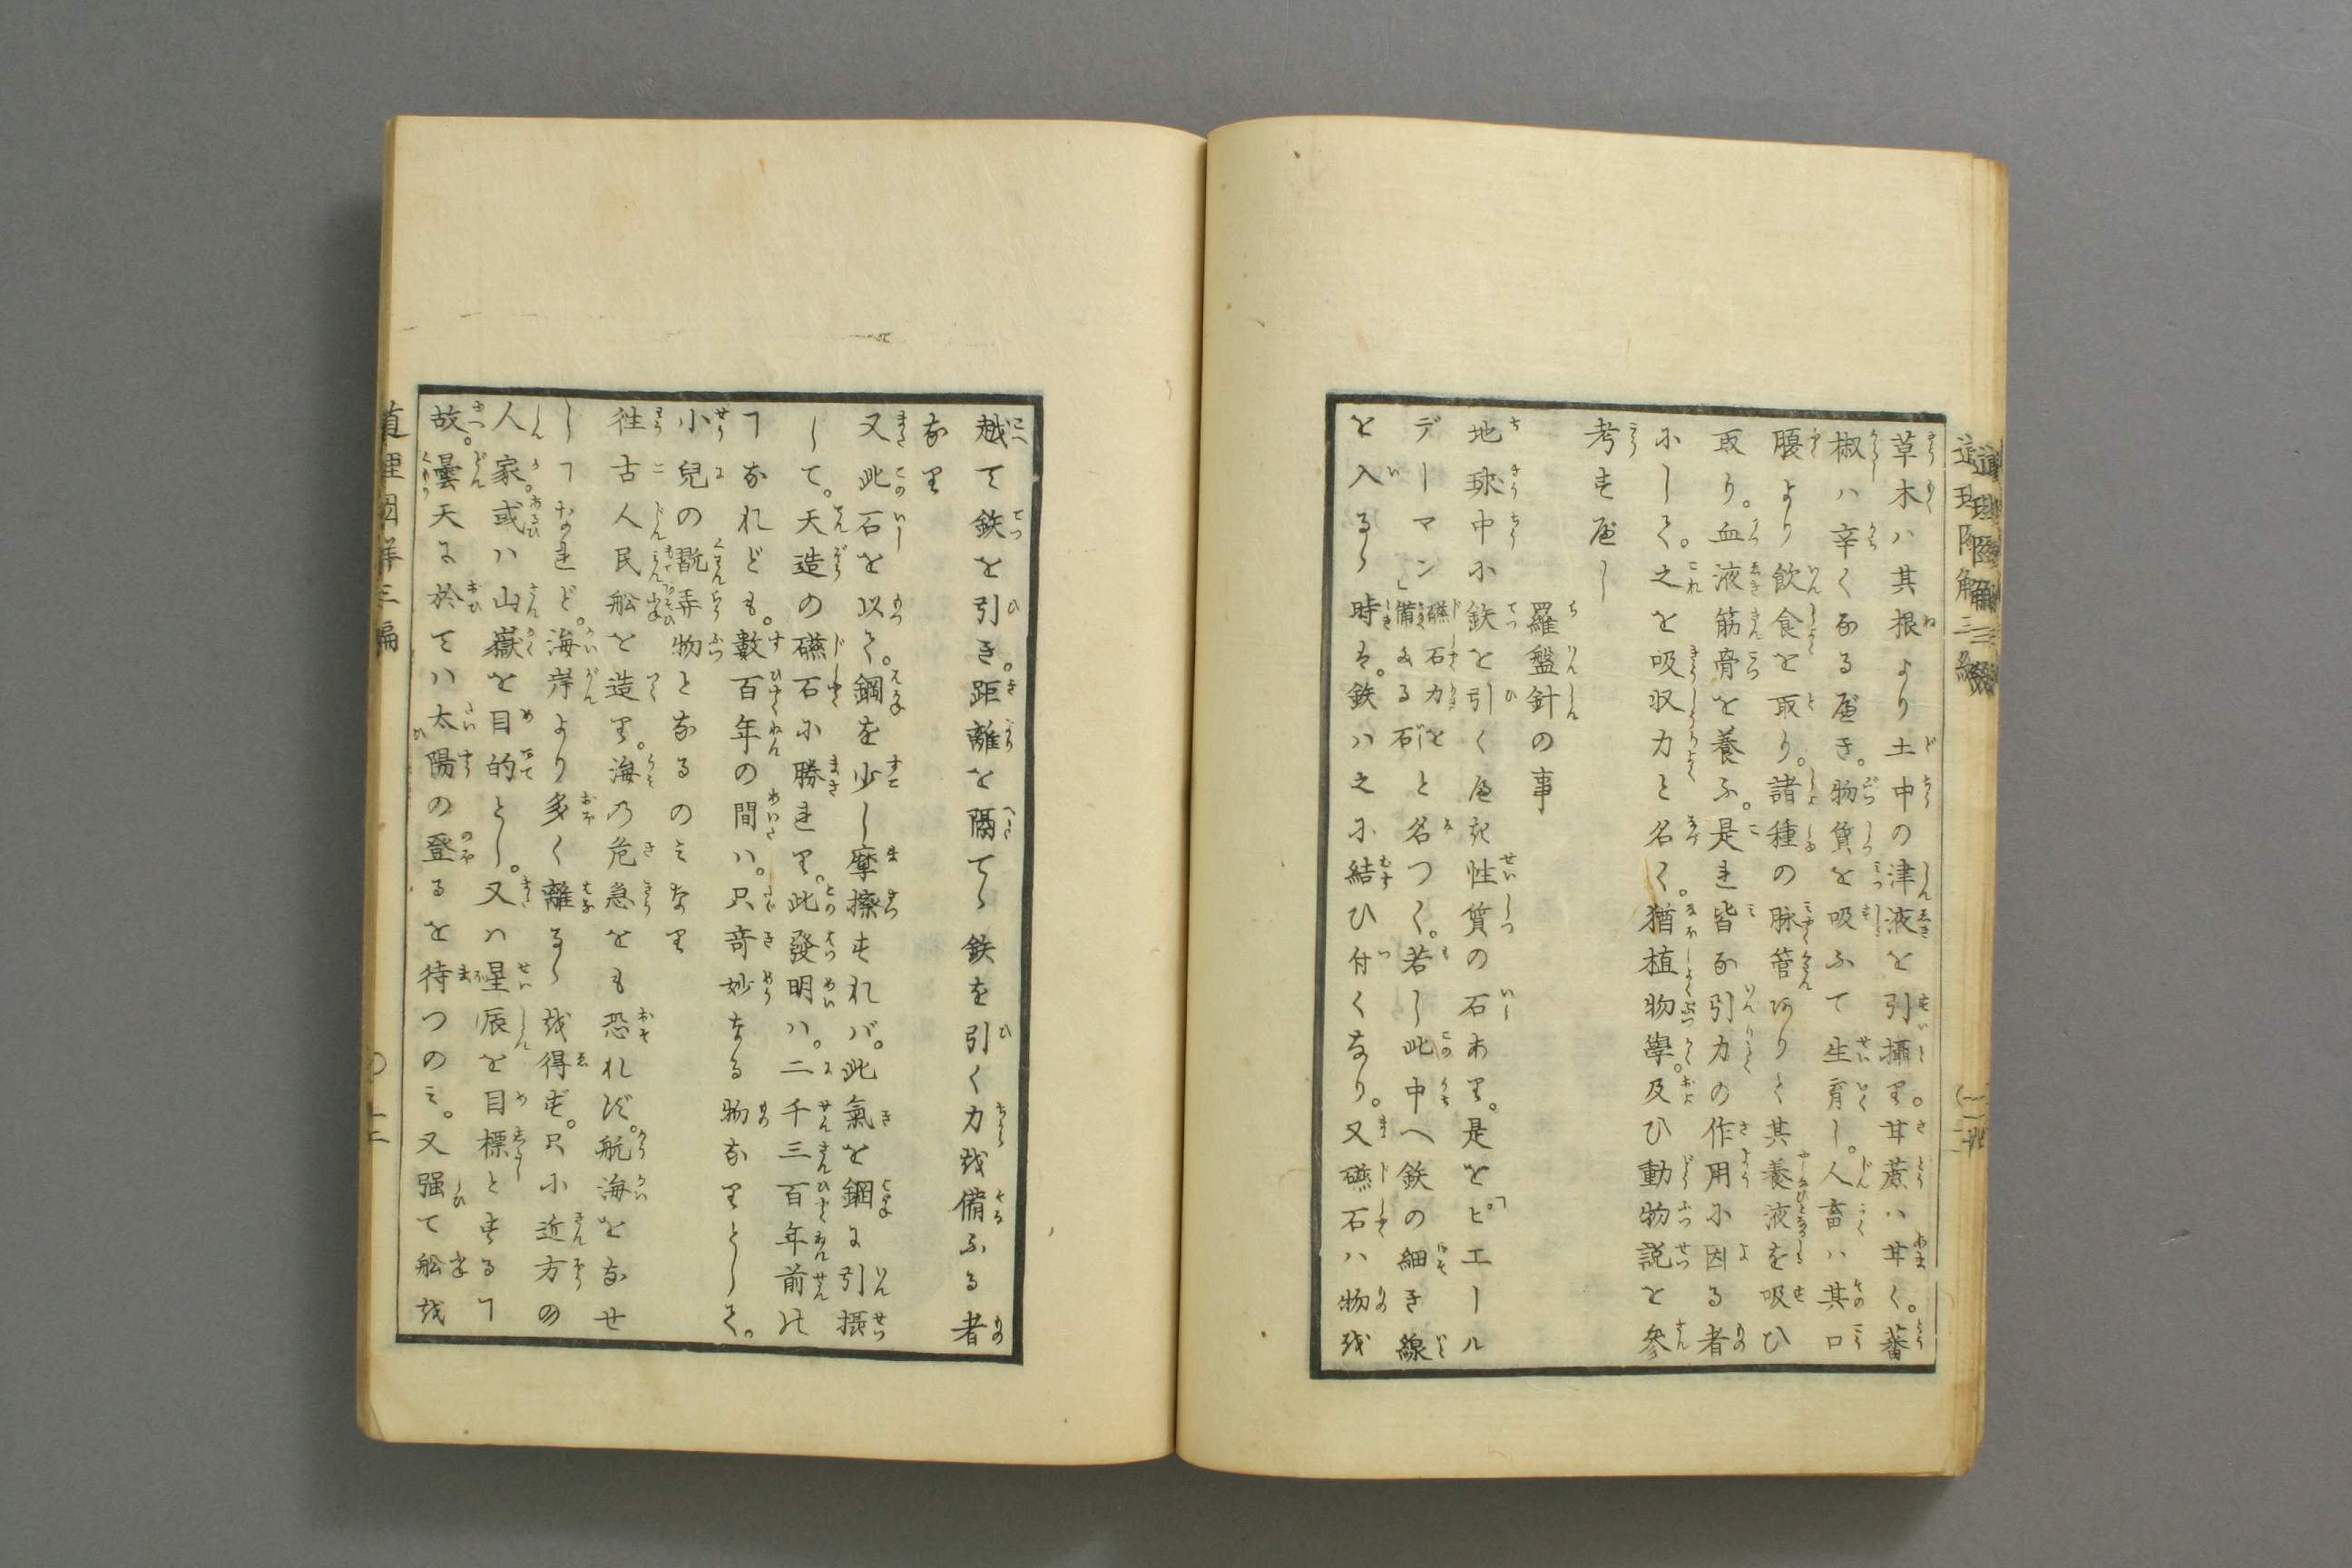 草木ハ其根より土中の津液を引攝り。甘蔗ハ甘く。蕃
椒ハ辛くなる度き。物質を吸ふて生育し。人畜ハ其口
腹より飲食を取り。諸種の脉管ありて其養液を吸ひ
取り。血液筋骨を養ふ。是れ皆な引力の作用に因る者
にして。之を吸収力と名く。猶植物學。及ひ動物説を參
考す度し
羅盤針の事
地球中に鉄を引く度き性質の石あり。是を「ピエール
デーマン」磁石力を備ある石と名つく。若し此中へ鉄の細き線
を入るゝ時は。鉄ハ之に結ひ付くなり。又磁石ハ物を
越て鉄を引き。距離を隔てゝ鉄を引く力を備ふる者
なり
又此石を以て。鋼を少し摩擦すれバ。此氣を鋼に引摂
して。天造の磁石に勝れり。此發明ハ。二千三百年前の
ヿなれども。數百年の間ハ。只竒妙なる物なりとして。
小兒の翫弄物となるのみなり
徃古人民舩を造り。海の危急をも恐れず。航海をなせ
しヿなれど。海岸より多く離るゝを得ず。只に近方の
人家。或ハ山嶽を目的とし。又ハ星辰を目標とするヿ
故。曇天に於てハ太陽の登るを待つのミ。又强て舩を
道理圖解三編